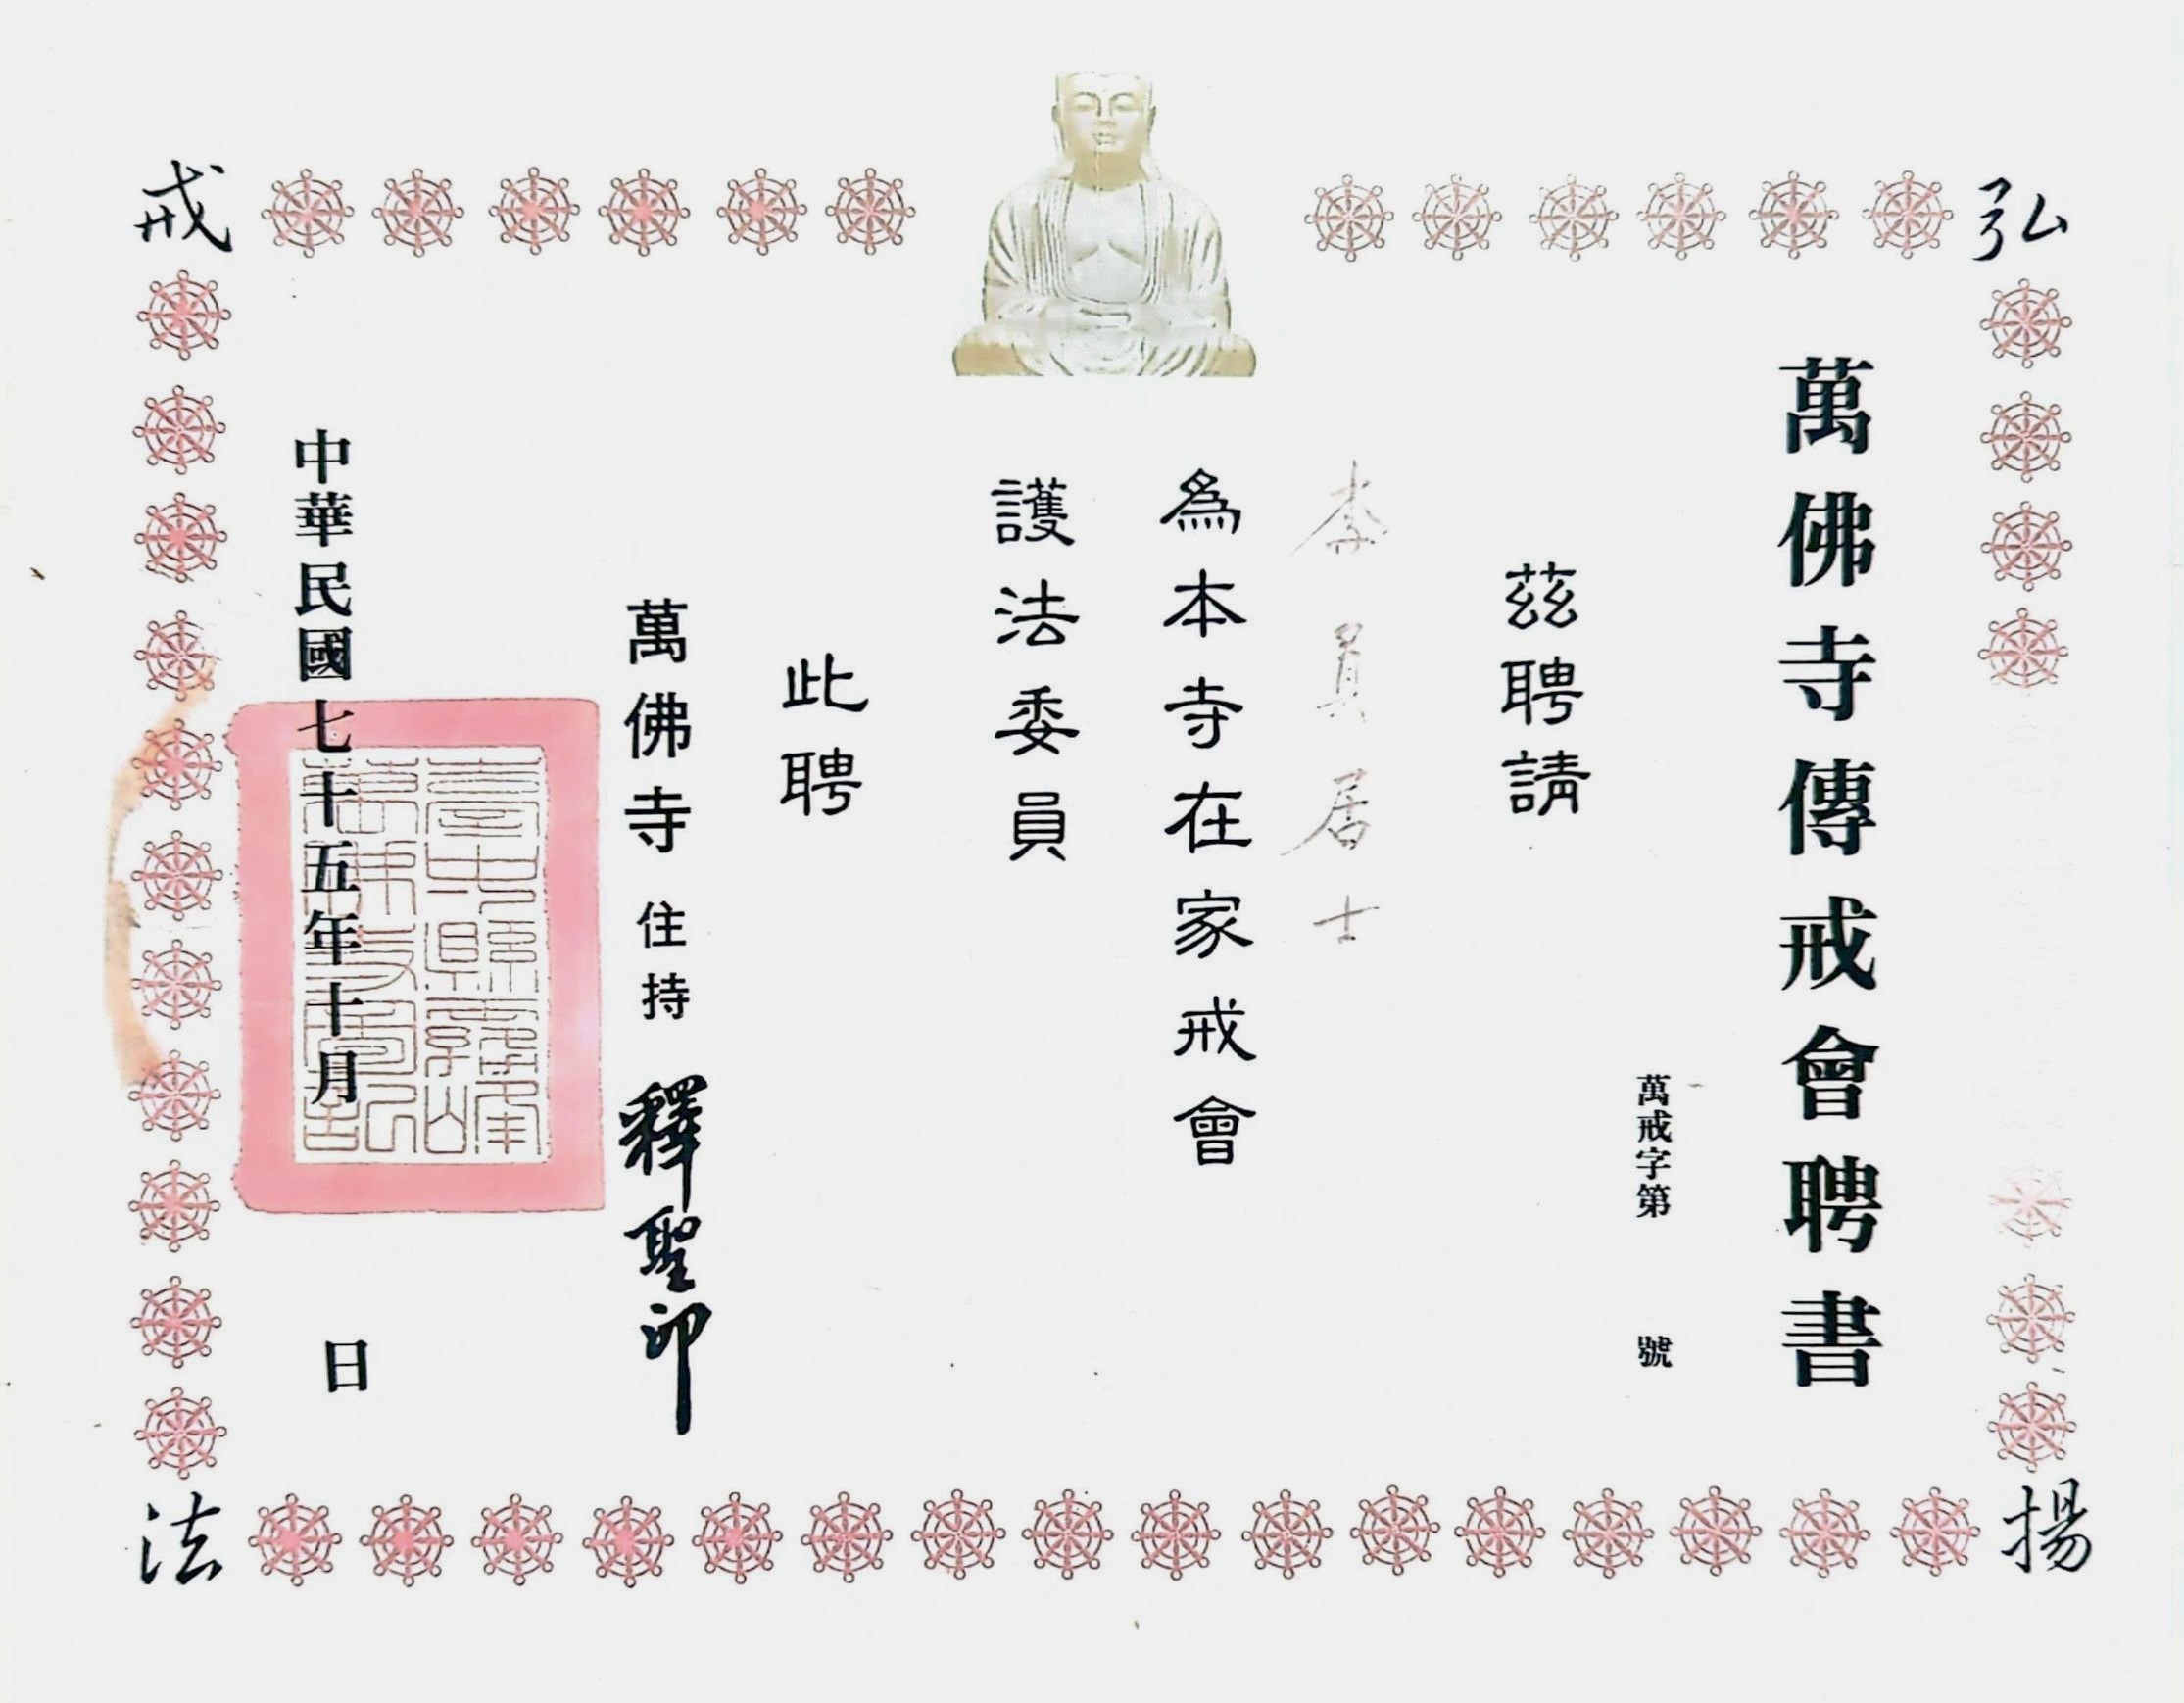 弘
揚
戒
法
萬佛寺傳戒會聘書
萬戒字第 號
茲聘請
李員居士
為本寺在家戒會
護法委員
此聘
萬佛寺 住持 釋聖印
中華民國七十五年十月 日
臺中縣霧峰
萬佛寺